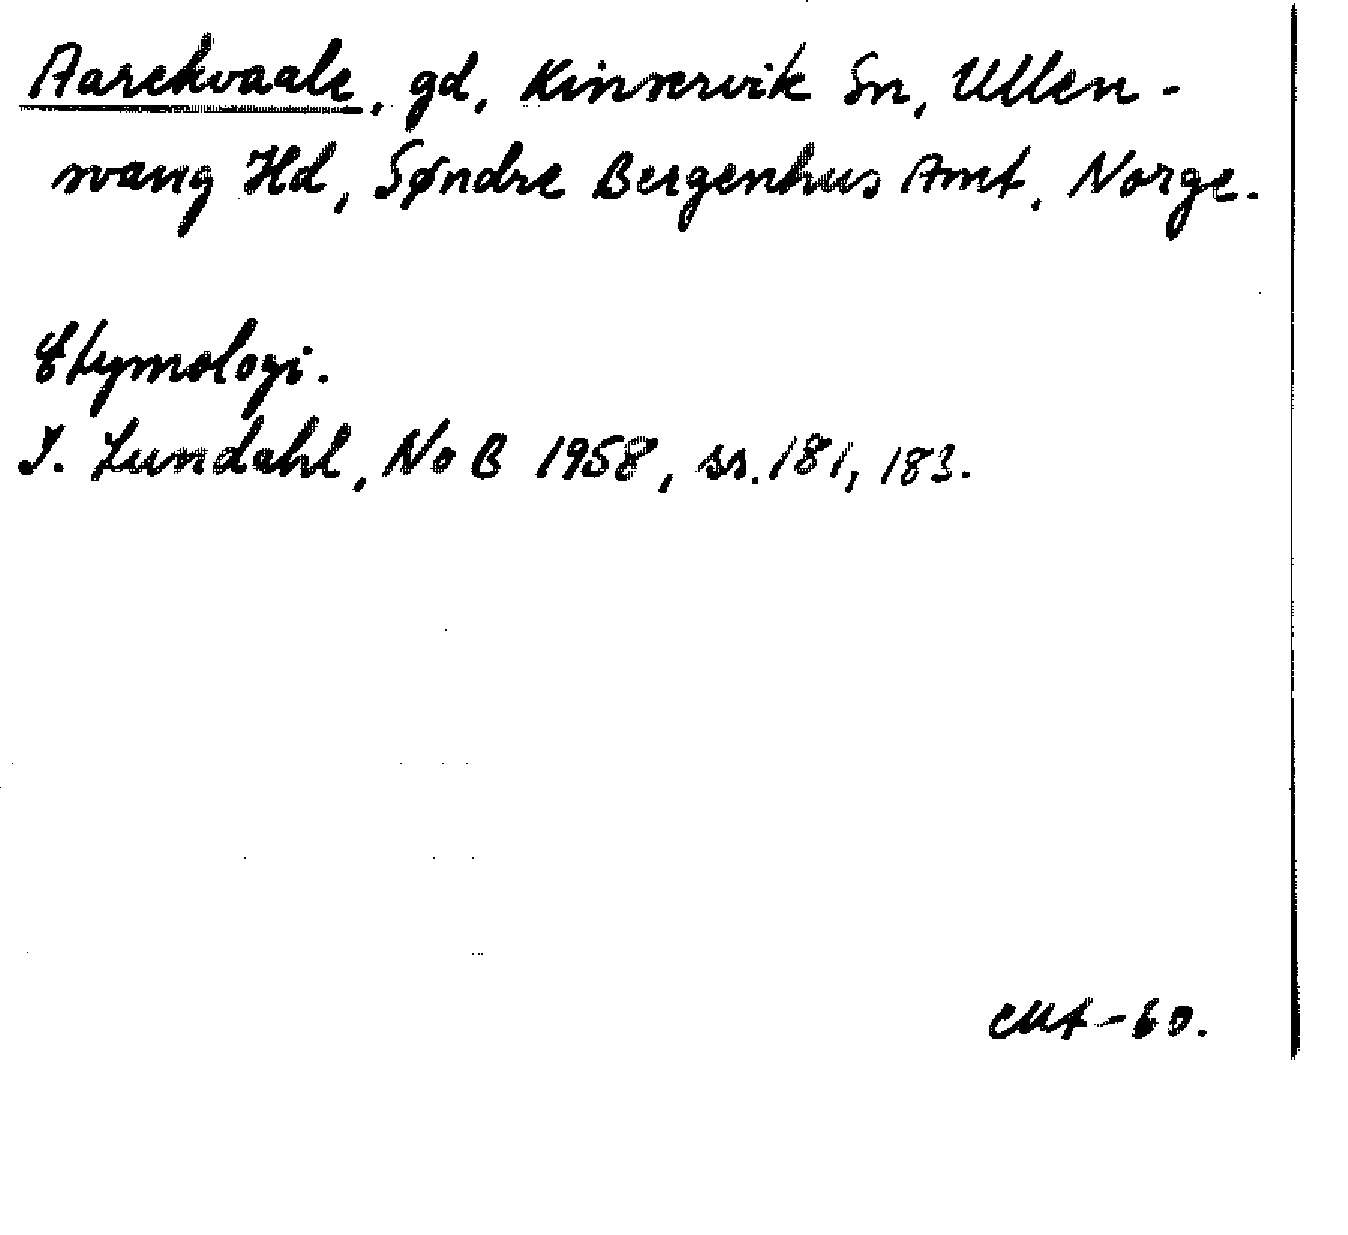 Aarekvaale, gd, Kinservik Sn, Ullen-
svang Hd, Søndre Bergenhus Amt, Norge.
Etymologi.
I. Lundahl, NoB 1958, ss. 181, 183.
-60.